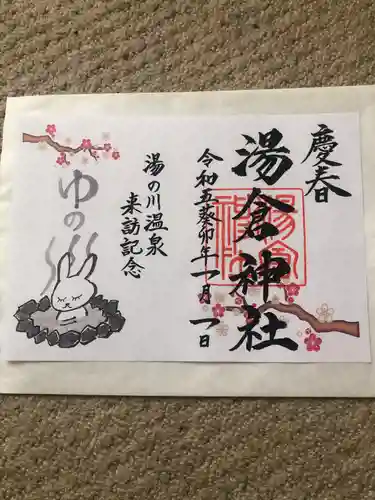 慶春
湯倉神社
令和五癸卯年一月一日
湯の川温泉
来訪記念
ゆの郷